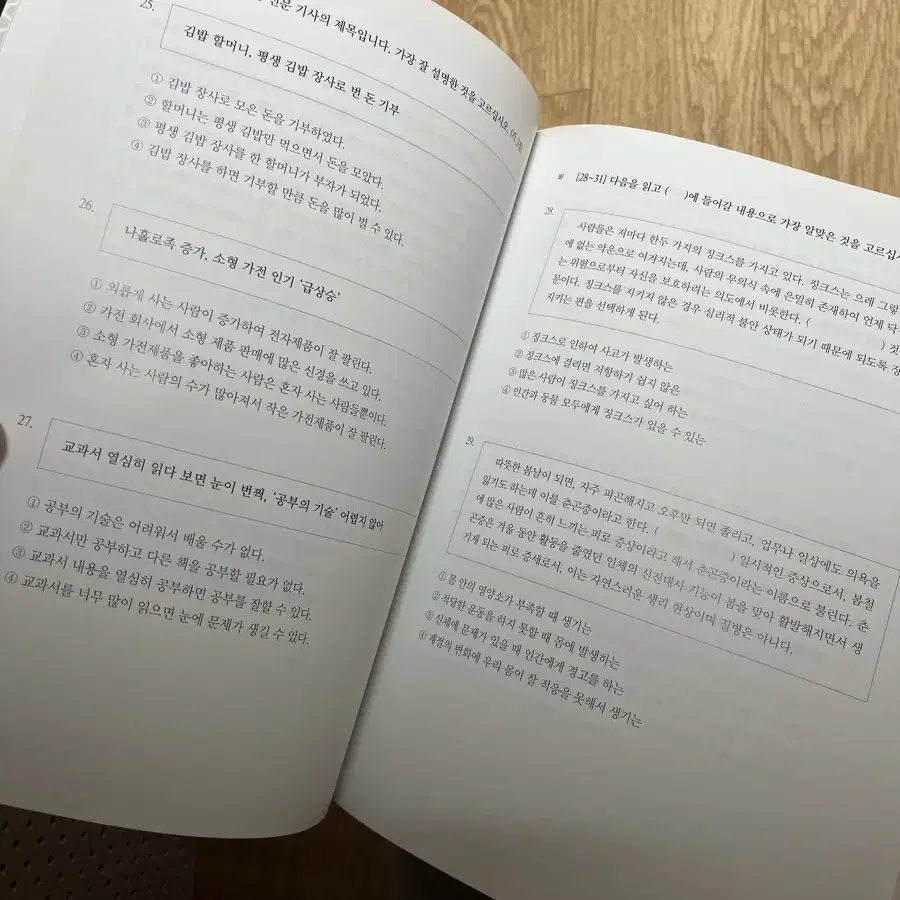 신문 기사의 제목입니다. 가장 잘 설명한 것을 고르십시오.
25.
김밥 할머니, 평생 김밥 장사로 번 돈 기부
① 김밥 장사로 모은 돈을 기부하였다.
② 할머니는 평생 김밥만 먹으면서 돈을 모았다.
③ 평생 김밥 장사를 한 할머니가 부자가 되었다.
④ 김밥 장사를 하면 기부할 만큼 돈을 많이 벌 수 있다.
26.
나홀로족 증가, 소형 가전 인기 '급상승'
① 외롭게 사는 사람이 증가하여 전자제품이 잘 팔린다.
② 가전 회사에서 소형 제품 판매에 많은 신경을 쓰고 있다.
③ 소형 가전제품을 좋아하는 사람은 혼자 사는 사람들뿐이다.
④ 혼자 사는 사람의 수가 많아져서 작은 가전제품이 잘 팔린다.
27.
교과서 열심히 읽다 보면 눈이 번쩍, '공부의 기술' 어렵지 않아
① 공부의 기술은 어려워서 배울 수가 없다.
② 교과서만 공부하고 다른 책을 공부할 필요가 없다.
③ 교과서 내용을 열심히 공부하면 공부를 잘할 수 있다.
④ 교과서를 너무 많이 읽으면 눈에 문제가 생길 수 있다.
※ [28~31] 다음을 읽고 ( )에 들어갈 내용으로 가장 알맞은 것을 고르십시
28.
사람들은 저마다 한두 가지의 징크스를 가지고 있다. 징크스는 으레 그렇
에 없는 악운으로 여겨지는데, 사람의 무의식 속에 은밀히 존재하여 언제 닥
는 위험으로부터 자신을 보호하려는 의도에서 비롯한다. ( ) 것
문이다. 징크스를 지키지 않은 경우 심리적 불안 상태가 되기 때문에 되도록 징
지키는 편을 선택하게 된다.
① 징크스로 인하여 사고가 발생하는
② 징크스에 걸리면 저항하기 쉽지 않은
③ 많은 사람이 징크스를 가지고 싶어 하는
④ 인간과 동물 모두에게 징크스가 있을 수 있는
29.
따뜻한 봄날이 되면, 자주 피곤해지고 오후만 되면 졸리고, 업무나 일상에도 의욕을
잃기도 하는데 이를 춘곤증이라고 한다. ( ) 일시적인 증상으로서, 봄철
에 많은 사람이 흔히 느끼는 피로 증상이라고 해서 춘곤증이라는 이름으로 불린다. 춘
곤증은 겨울 동안 활동을 줄였던 인체의 신진대사 기능이 봄을 맞아 활발해지면서 생
기게 되는 피로 증세로서, 이는 자연스러운 생리 현상이며 질병은 아니다.
① 몸 안의 영양소가 부족할 때 생기는
② 적당한 운동을 하지 못할 때 몸에 발생하는
③ 신체에 문제가 있을 때 인간에게 경고를 하는
④ 계절의 변화에 우리 몸이 잘 적응을 못해서 생기는